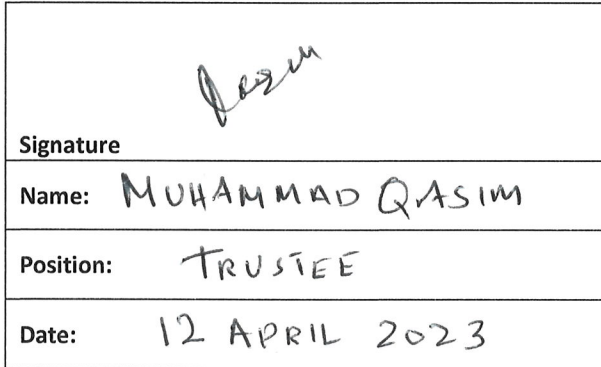 Signature
Name: MUHAMMAD QASIM
Position: TRUSTEE
Date: 12 APRIL 2023